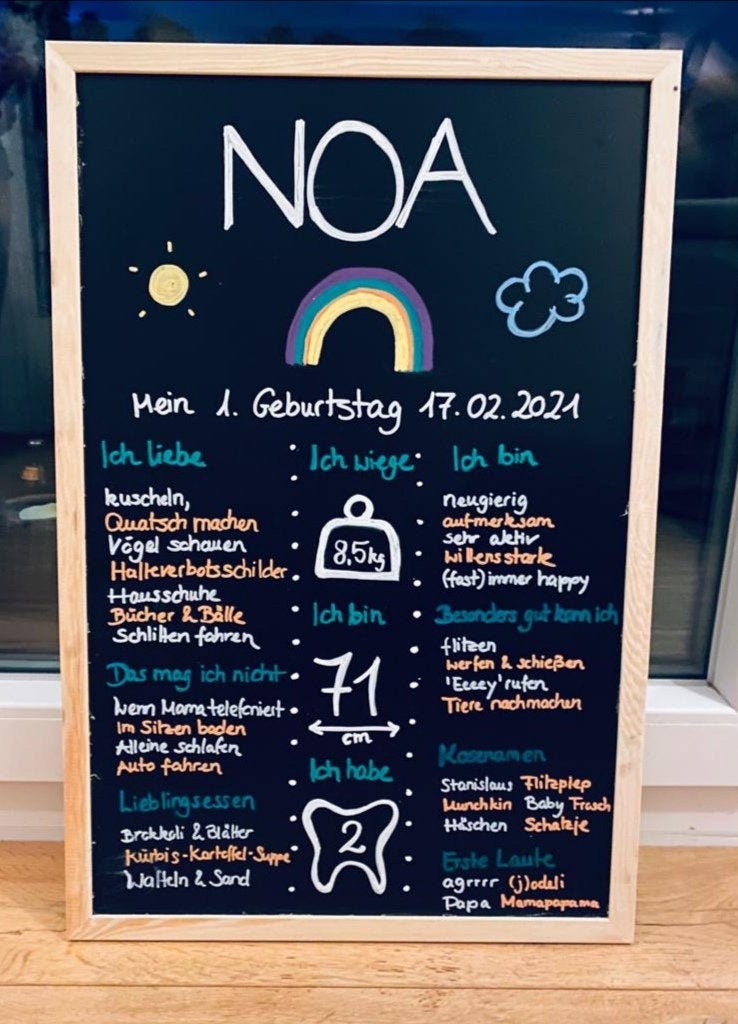 NOA
Mein 1. Geburtstag 17.02.2021
Ich liebe
kuscheln,
Quatsch machen
Vögel schauen
Halteverbotsschilder
Hausschuhe
Bücher & Bälle
Schlitten fahren
Das mag ich nicht
Wenn Mama telefoniert
im Sitzen baden
Alleine schlafen
Auto fahren
Lieblingsessen
Brokkoli & Blätter
Kürbis-Kartoffel-Suppe
Waffeln & Sand
Ich wiege
8,5kg
Ich bin
71
cm
Ich habe
2
Ich bin
neugierig
aufmerksam
sehr aktiv
willensstark
(fast) immer happy
Besonders gut kann ich
flitzen
werfen & schießen
'Eeeey' rufen
Tiere nachmachen
Kosenamen
Stanislaus Flitzpiep
Munchkin Baby Frosch
Häschen Schatzje
Erste Laute
agrrrr (j)odeli
Papa Mamapapama